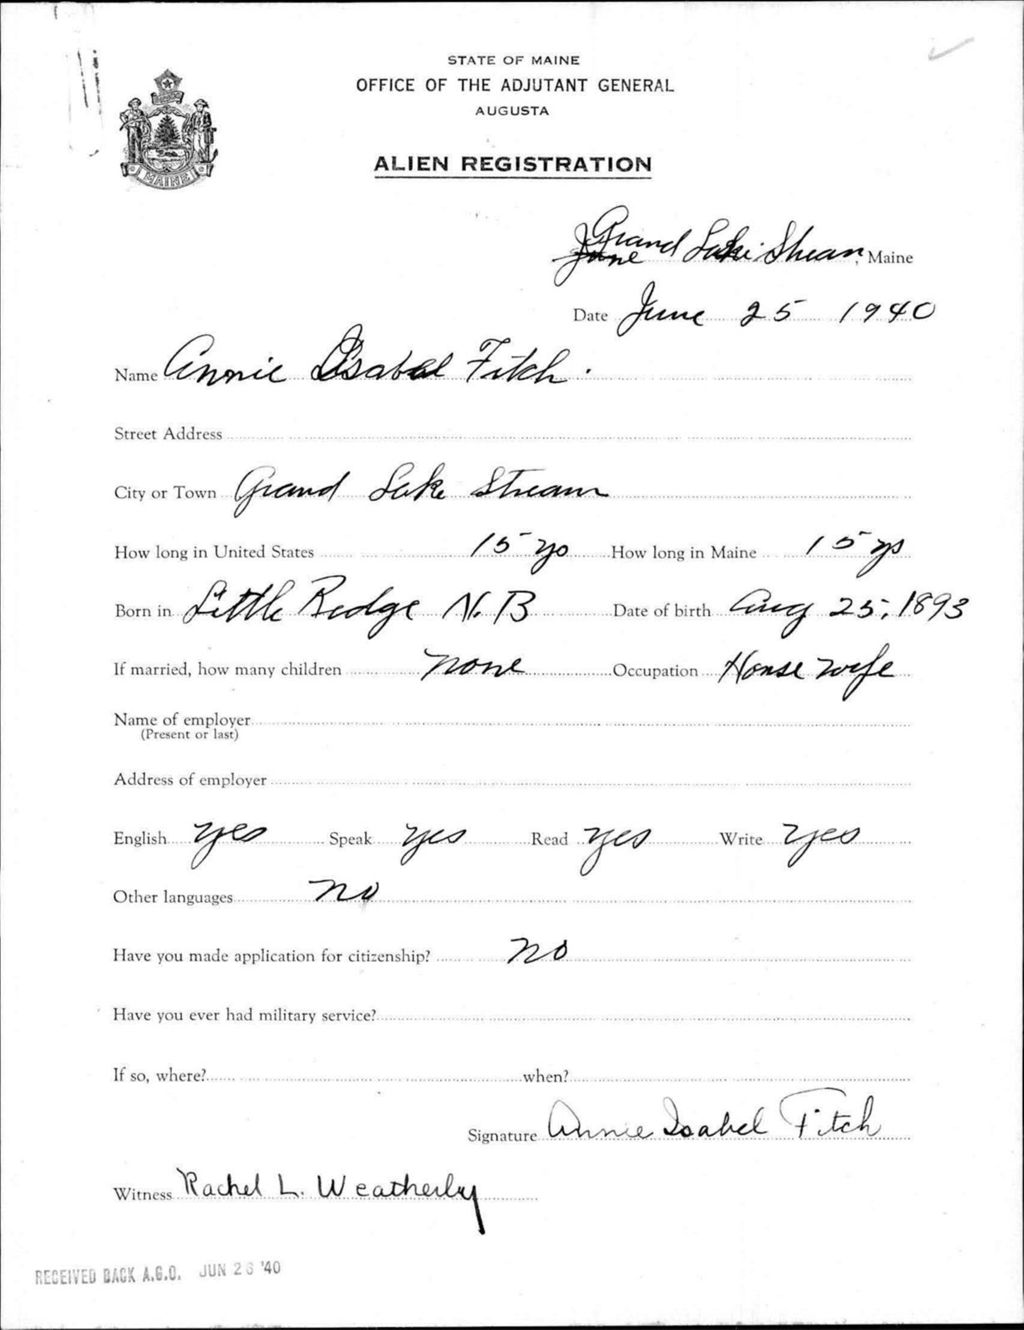 STATE OF MAINE
OFFICE OF THE ADJUTANT GENERAL
AUGUSTA
ALIEN REGISTRATION
MAINE
Grand Lake Stream, Maine
June
Date June 25 1940
Name Annie Isabel Fitch.
Street Address
City or Town Grand Lake Stream
How long in United States 15 ys How long in Maine 15 ys
Born in Little Redge N.B Date of birth Aug 25, 1893
If married, how many children none Occupation House wife
Name of employer
(Present or last)
Address of employer
English yes Speak yes Read yes Write yes
Other languages no
Have you made application for citizenship? no
Have you ever had military service?
If so, where? when?
Signature Annie Isabel Fitch
Witness Rachel L. Weatherby
RECEIVED BACK A.G.O. JUN 26 '40